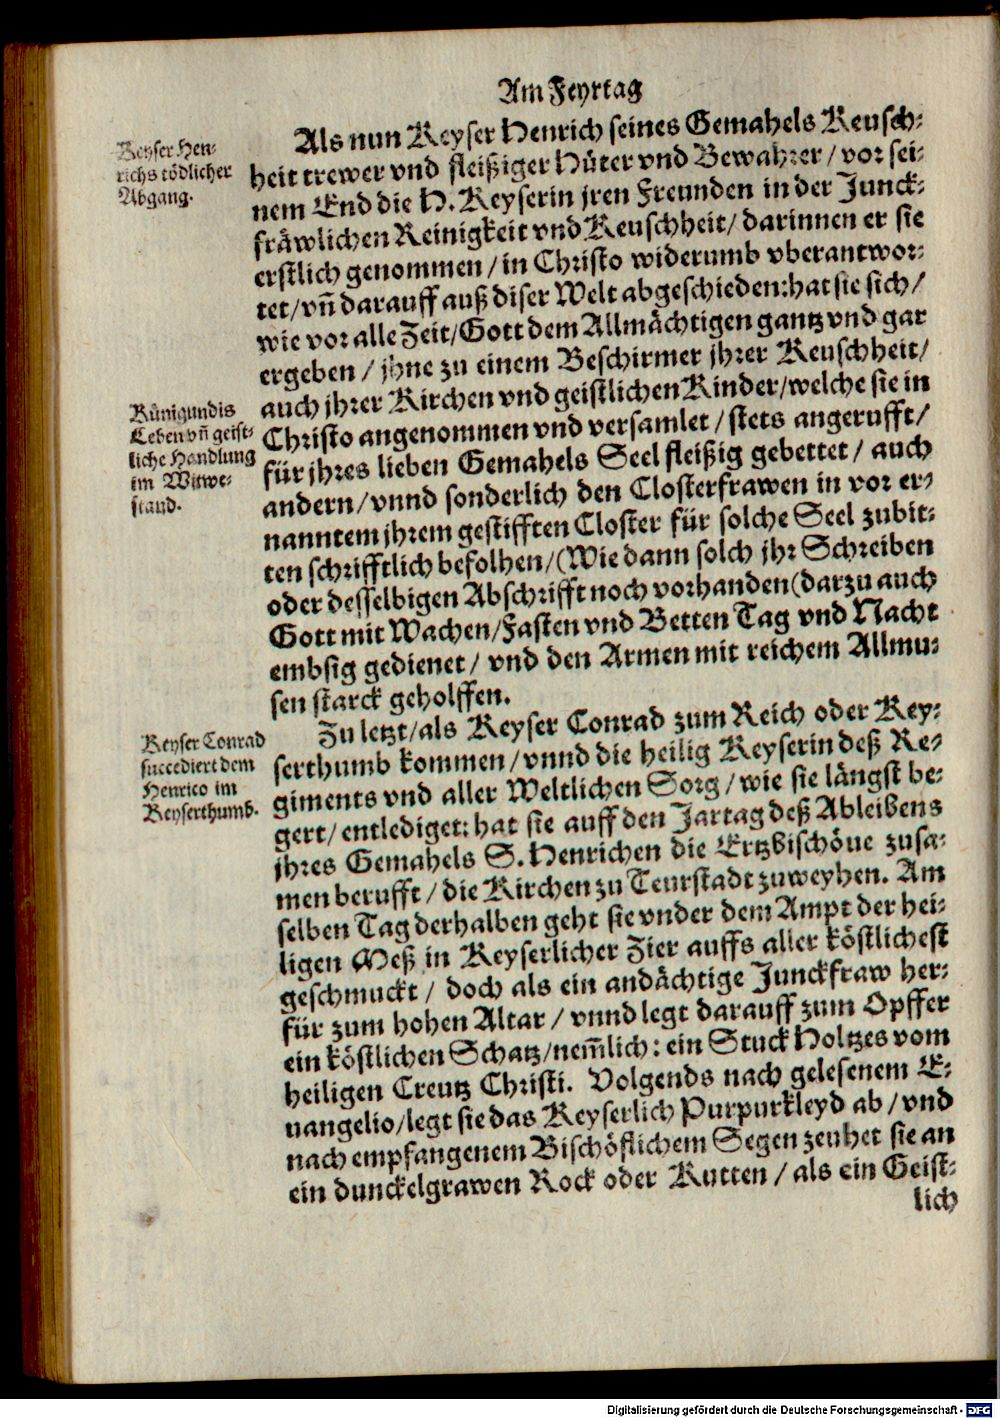 Am Feyrtag
Als nun Keyser Henrich seines Gemahels Keusch-
heit trewer vnd fleißiger Hüter vnd Bewahrer / vor sei-
nem End die H. Keyserin jren Freunden in der Junck-
fräwlichen Reinigkeit vnd Keuschheit / darinnen er sie
erstlich genommen / in Christo widerumb vberantwor-
tet / vñ darauff auß diser Welt abgeschieden: hat sie sich /
wie vor alle Zeit / Gott dem Allmächtigen gantz vnd gar
ergeben / jhne zu einem Beschirmer jhrer Keuschheit /
auch jhrer Kirchen vnd geistlichen Kinder / welche sie in
Christo angenommen vnd versamlet / stets angerufft /
für jhres lieben Gemahels Seel fleißig gebettet / auch
andern / vnnd sonderlich den Closterfrawen in vor er-
nanntem jhrem gestifften Closter für solche Seel zubit-
ten schrifftlich befolhen / (Wie dann solch jhr Schreiben
oder desselbigen Abschrifft noch vorhanden (darzu auch
Gott mit Wachen / Fasten vnd Betten Tag vnd Nacht
embsig gedienet / vnd den Armen mit reichem Allmu-
sen starck geholffen.
Zu letzt / als Keyser Conrad zum Reich oder Key-
serthumb kommen / vnnd die heilig Keyserin deß Re-
giments vnd aller Weltlichen Sorg / wie sie längst be-
gert / entlediget: hat sie auff den Jartag deß Ableibens
jhres Gemahels S. Henrichen die Ertzbischöue zusa-
men berufft / die Kirchen zu Teurstadt zuweyhen. Am
selben Tag derhalben geht sie vnder dem Ampt der hei-
ligen Meß in Keyserlicher Zier auffs aller köstlichest
geschmuckt / doch als ein andächtige Junckfraw her-
für zum hohen Altar / vnnd legt darauff zum Opffer
ein köstlichen Schatz / nem̃lich: ein Stuck Holtzes vom
heiligen Creutz Christi. Volgends nach gelesenem E-
uangelio / legt sie das Keyserlich Purpurkleyd ab / vnd
nach empfangenem Bischöflichem Segen zeuhet sie an
ein dunckelgrawen Rock oder Kutten / als ein Geist-
lich
Keyser Hen-
richs tödlicher
Abgang.
Künigundis
Leben vñ geist-
liche Handlung
im Witwe-
stand.
Keyser Conrad
succediert dem
Henrico im
Keyserthumb.
Digitalisierung gefördert durch die Deutsche Forschungsgemeinschaft - DFG